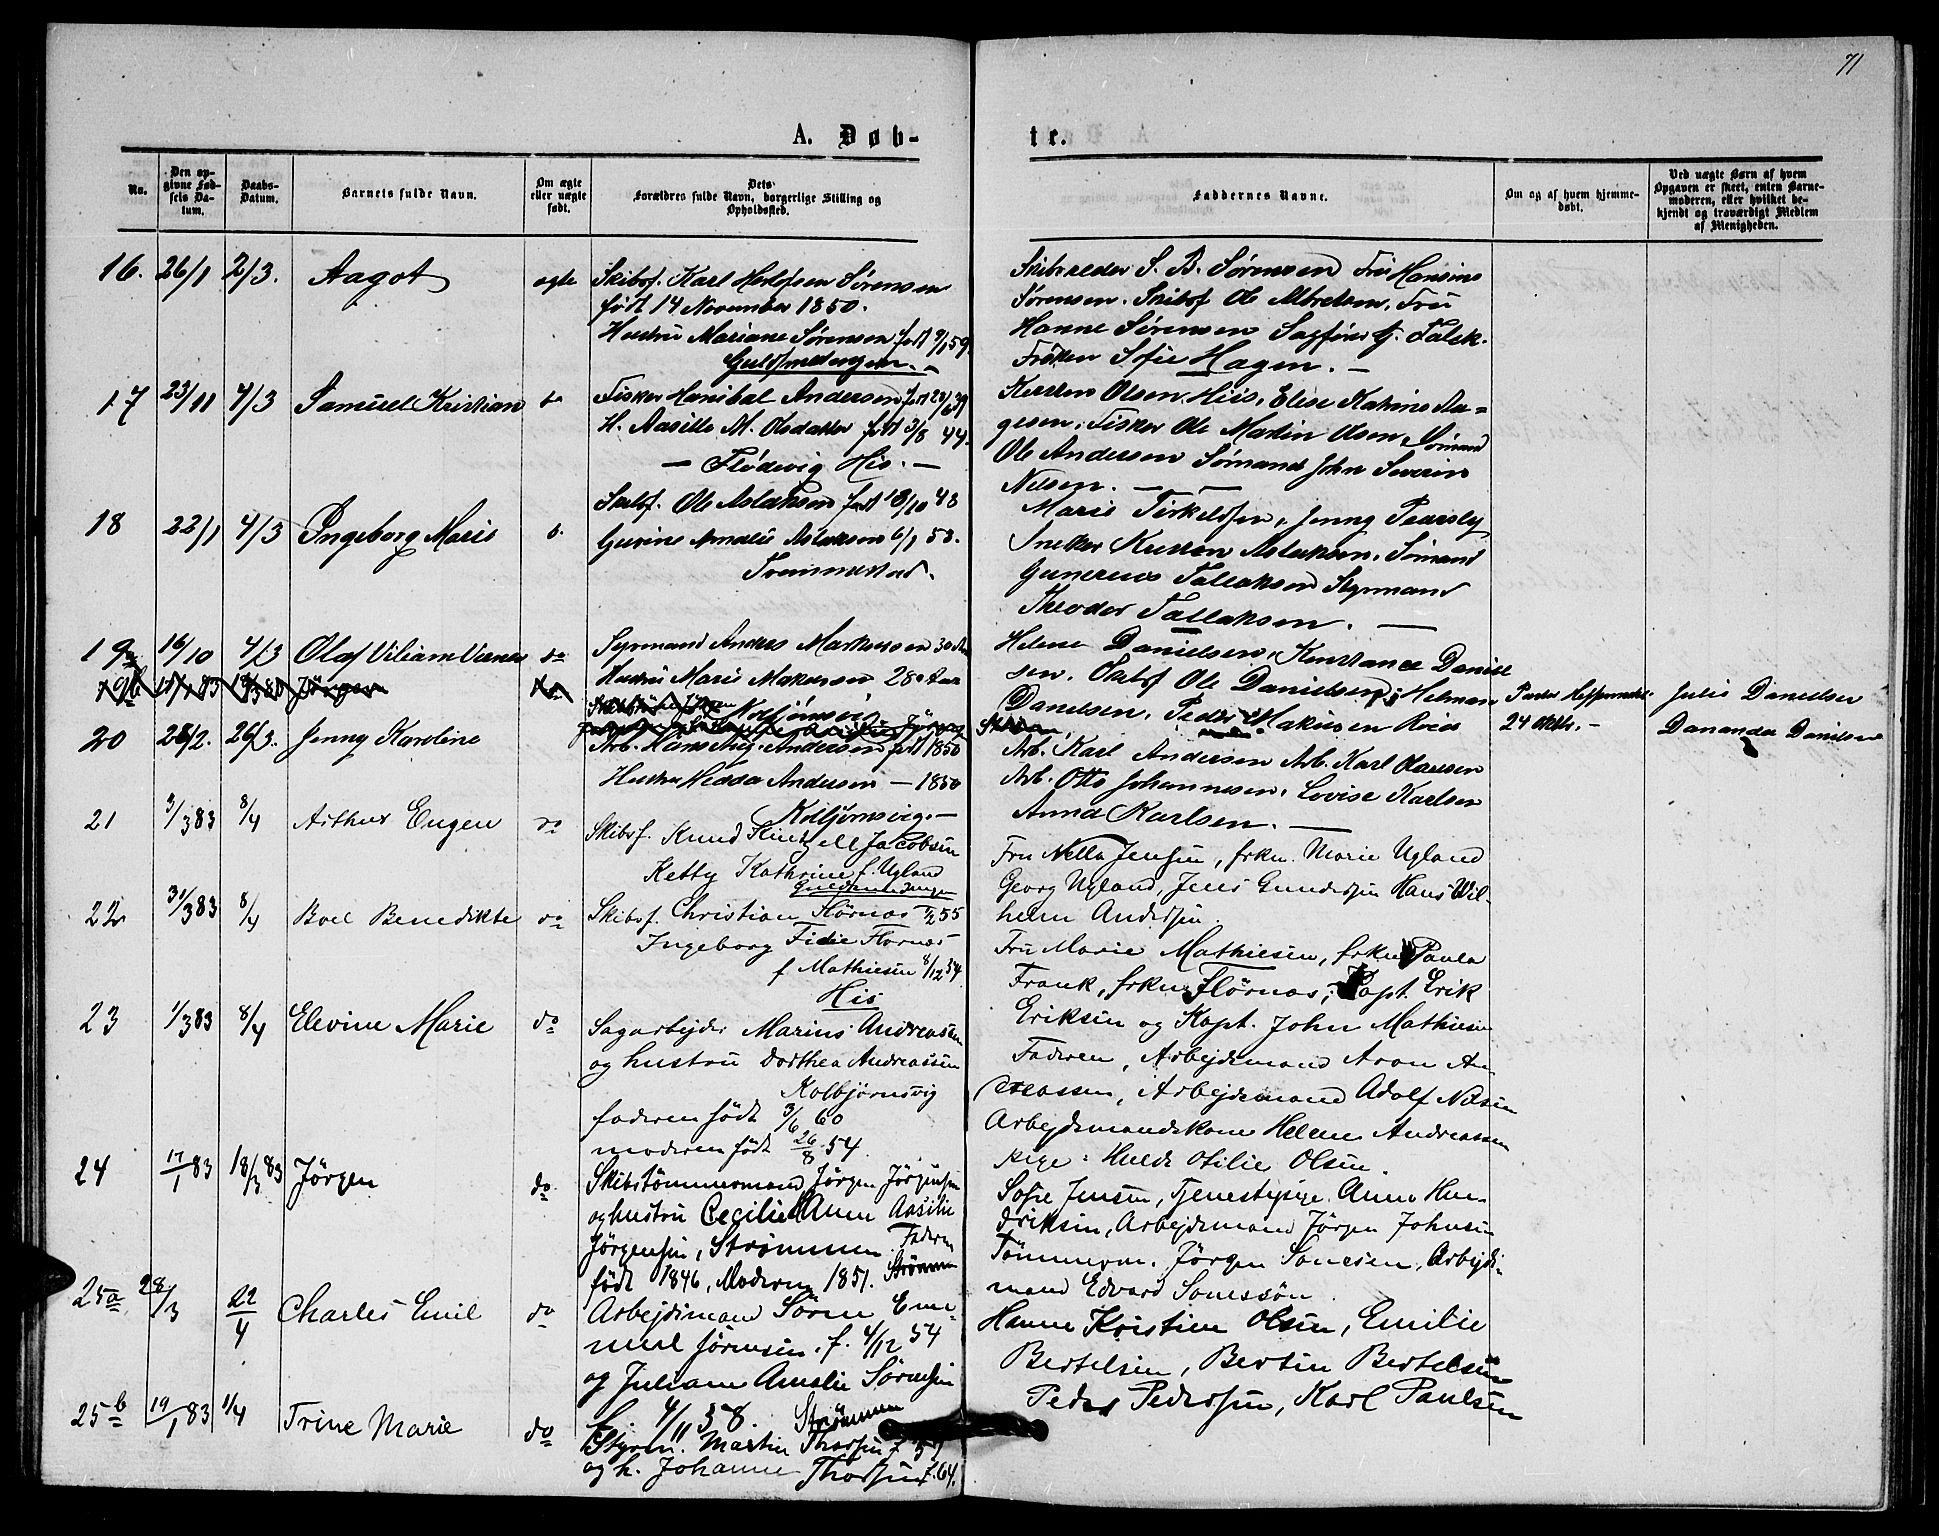 71
A. Døb-
te.
No.
Den op-
givne Fød-
sels Da-
tum.
Daabs-
Datum.
Barnets fulde Navn.
Om ægte
eller uægte
født.
Dets
Forældres fulde Navn, borgerlige Stilling og
Opholdssted.
Faddernes Navne.
Om og af hvem hjemme-
døbt.
Ved uægte Børn af hvem
Opgaven er skeet, enten Barne-
moderen, eller hvilket be-
kjendt og troværdigt Medlem
af Menigheden.
16. 26/1 2/3. Aagot ægte
Skibsf. Karl Sørensen
født 14 November 1850.
Hustru Mariane Sørensen født 9/1 59
Skibsreder S. B. Sørensen Fru Hansine
Sørensen. Skibsf Ole Albretsen, Fru
Hanne Sørensen Sagfører G. Falck.
Frøken Sofie Hagen. —
17 23/11 4/3 Samuel Kristian do
Fisker Hanibal Andersen født
H. Aasille M. Olsdatter født 3/8 44.
— Flødevig His. —
Kirsten Olsen His, Elise Katrine Aa=
gesen, Fisker Ole Martin Olsen, Sømand
Ole Andersen Sømand John Severin
Nilsen. —
18 22/1 4/3 Ingeborg Marie d.
Skibsf. Ole Aslaksen født 18/10 48
Gurine Amalie Aslaksen 6/1 53.
Tromme
Marie Terkelsen, Jenny
Snekker Kristen Aslaksen, Sømand
Gunerius Tallaksen Styrmand
Theodor Tallaksen. —
19a 16/10 4/3 Olaf Viliam do
Styrmand Anders Markussen 30 Aar
Hustru Marie Makusen 28 Aar
Kolbjørnsvig
Helene Danielsen, Konstance Daniel
sen. Skibsf Ole Danielsen, Helman
Danielsen, Peder Makusen
24 Oktbr. —
Julie Danielsen
Danielsen
19b Jørgen
20 25/2. 26/3. Jenny Karoline
Arb. Andersen født 1850
Hustru Andersen — 1850
Kolbjørnsvig. —
Arb. Karl Andersen Arb. Karl Olausen
Arb. Otto Johannesen, Lovise Karlsen
Anna Karlsen. —
21 3/3 83 8/4 Arthur Eugen do
Skibsf. Knud Jacobsen
Ketty Kathrine f. Ugland
Fru Nella Jensen, frkn. Marie Ugland
Georg Ugland, Jens Gundersen Hans Wil-
helm Andersen.
22 31/3 83 8/4 Boel Benedikte do
Skibsf. Christian Flørnas 55
Ingeborg Fidie Flørnas
f Mathiesen 8/12 54.
His
Fru Marie Mathiesen, frkn Paula
Frank, frkn Flørnas, Kapt. Erik
Eriksen og Kapt. John Mathiesen
23 1/3 83 8/4 Elevine Marie do
Sagarbejder Marius Andreassen
og hustru Dorthea Andreassen
Kolbjørnsvig
faderen født 3/6 60
moderen født 26/8 54.
Faderen, Arbejdsmand Aron An-
dreassen, Arbejdsmand Adolf Nilsen
Arbejdsmandskone Helene Andreassen
Pige: Hulda Otilie Olsen.
24 17/1 83 18/3 83 Jörgen do.
Skibstömmermand Jörgen Jörgensen
og hustru Cecilie Anne Aasilie
Jörgensen, Strømmen. Faderen
født 1846, Moderen 1851. Strømmen
Sofie Jensen, Tjenestepige Anna Hen-
driksen, Arbejdsmand Jörgen Johnsen
Tömmerm. Jörgen Sonesen, Arbejds-
mand Edvard Sonessön.
25a 28/3 22/4 Charles Emil do
Arbejdsmand Sören Em-
anuel Jörensen, f. 4/12 54
og Juliane Amalie Sörensen
f. 4/11 58. Strömmen
Hanne Kristine Olsen, Emilie
Bertelsen, Bertin Bertelsen
Peder Pedersen, Karl Paulsen
25b 19/1 83 1/4 Trine Marie do
Styrm. Martin Thorsen f. 57
og h. Johanne Thorsen f. 64.